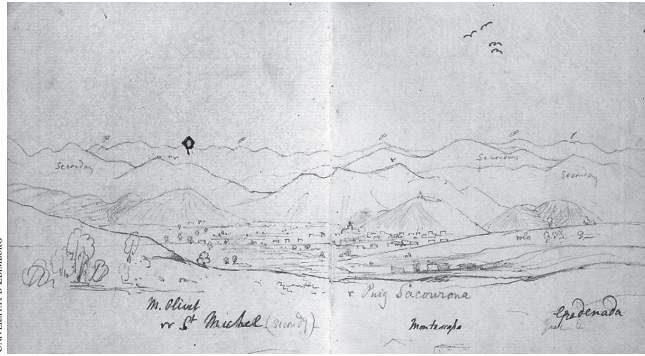 Secondary
Secondary
Secondary
M. Olivet
St Michel (second)
Puig Sacourona
Montesopa
Gredenada
UNIVERSITY OF EDINBURG